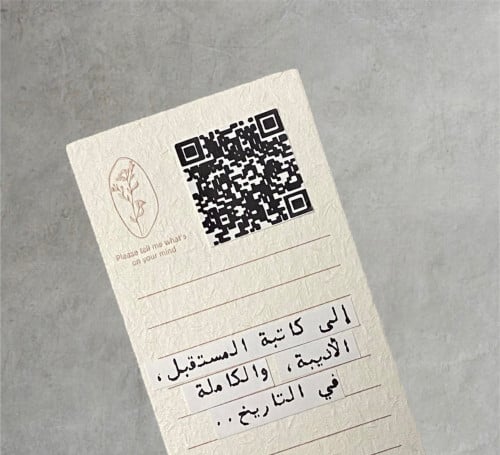 Please tell me what's
on your mind
إلى كاتبة المستقبل،
الأديبة، والكاملة
في التاريخ..